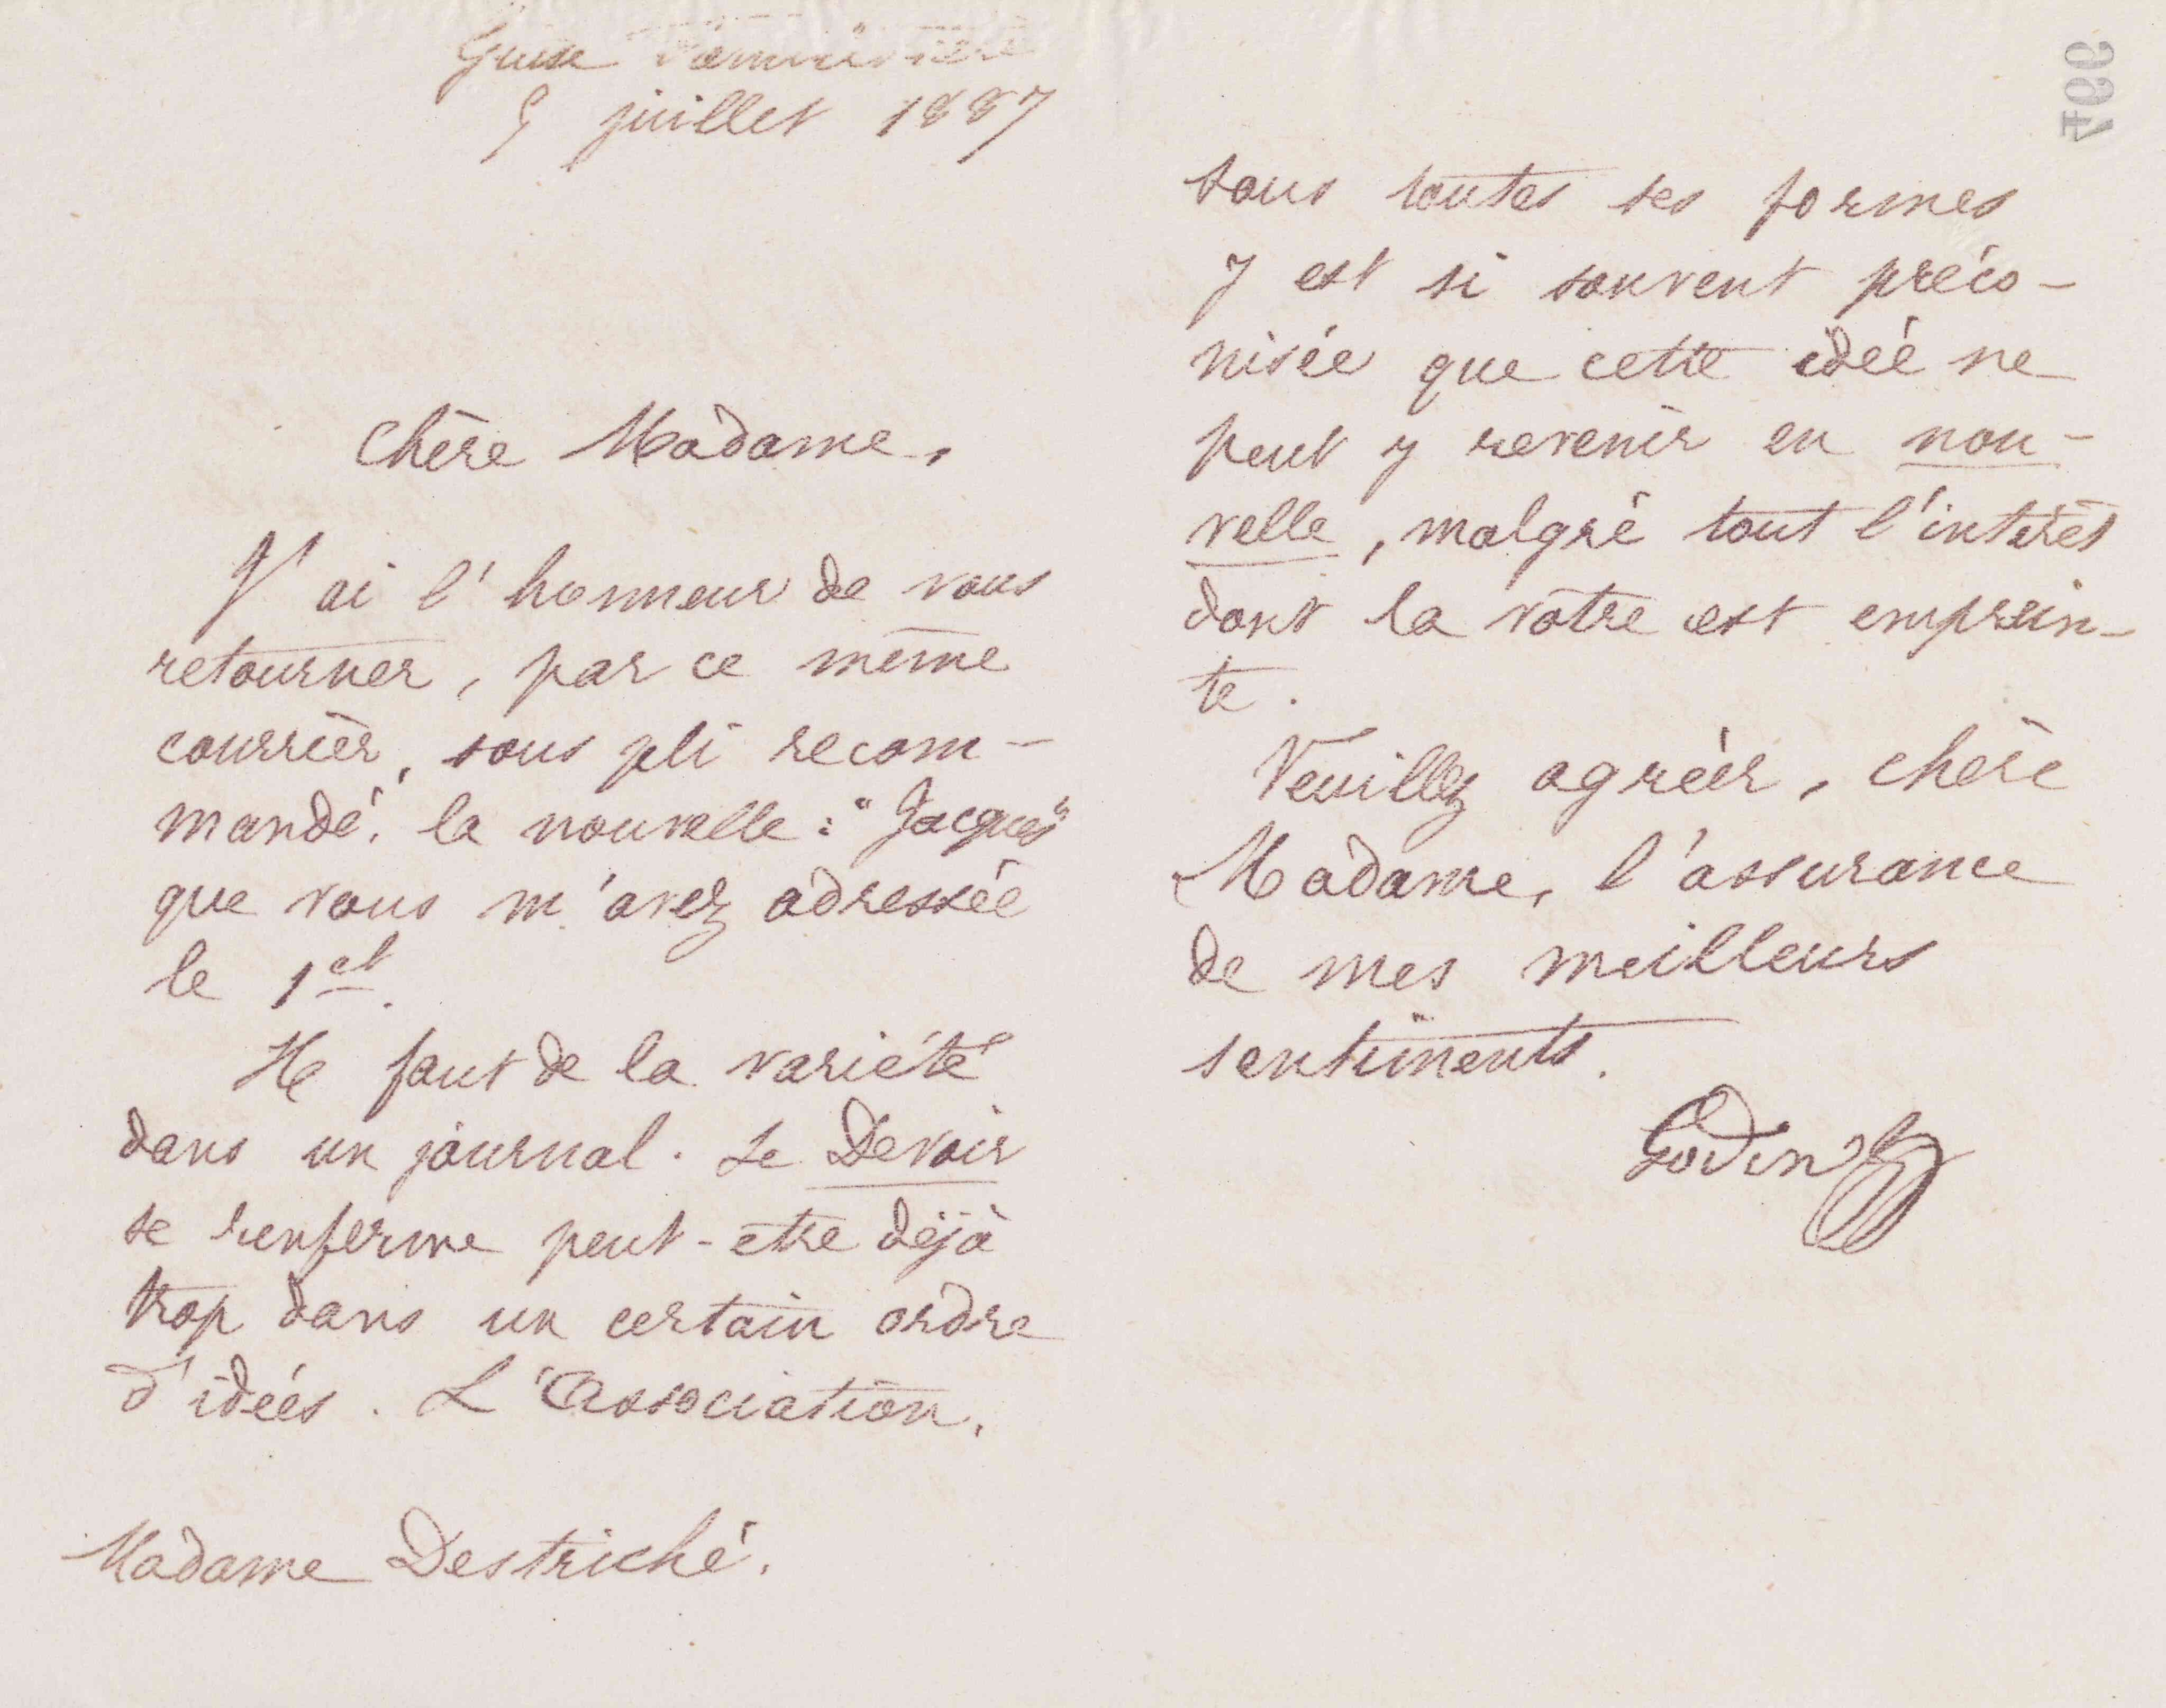 Guise Familistère
9 juillet 1887
Chère Madame,
J'ai l'honneur de vous
retourner, par ce même
courrier, sous pli recom-
mandé, la nouvelle : "Jacques"
que vous m'avez adressée
le 1et.
Il faut de la variété
dans un journal. Le Devoir
se renferme peut-être déjà
trop dans un certain ordre
d'idées. L'Association,
Madame Destriché.
466
sous toutes ses formes
y est si souvent préco-
nisée que cette idée ne
peut y revenir en nou-
velle, malgré tout l'intérêt
dont la vôtre est emprein-
te.
Veuillez agréer, chère
Madame, l'assurance
de mes meilleurs
sentiments.
Godin